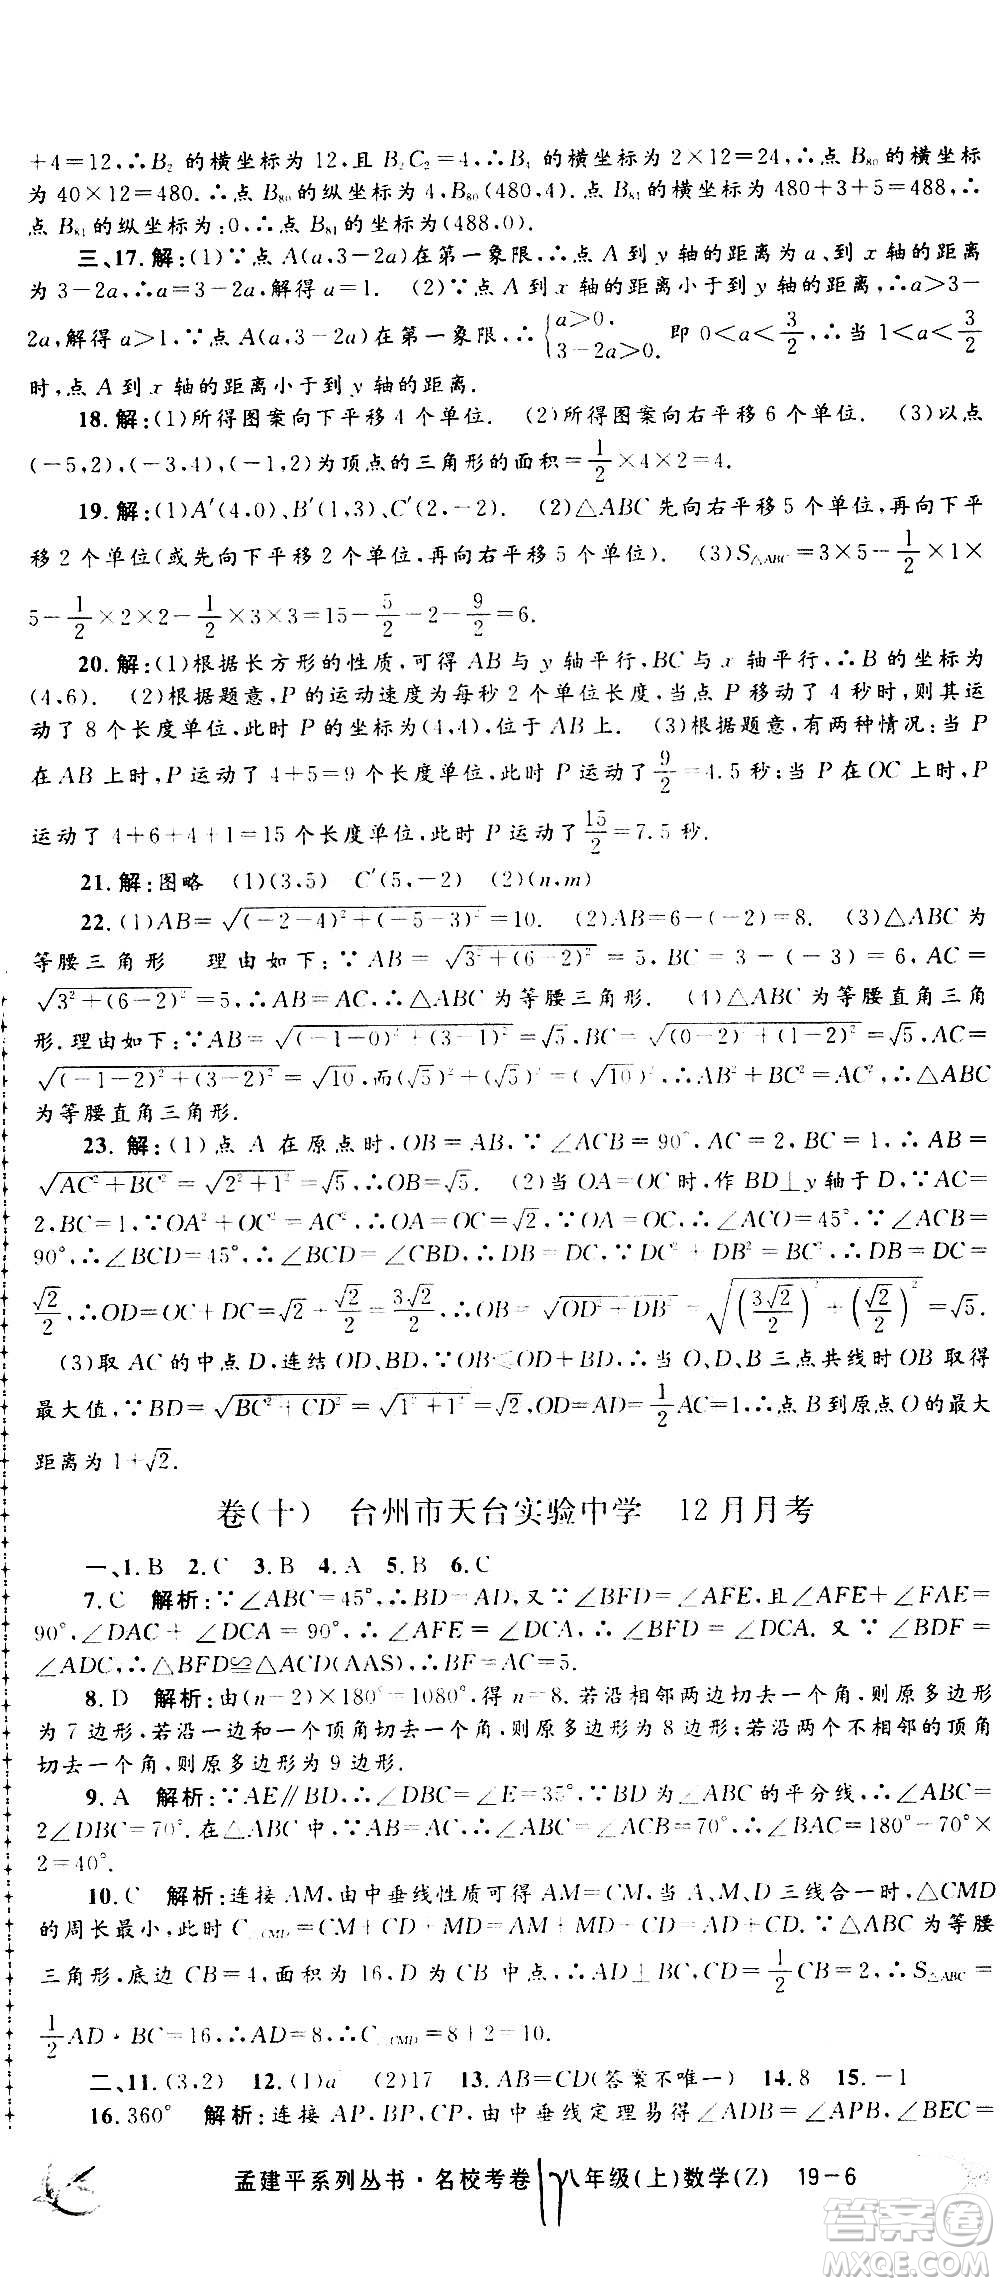 +4=12,∴B₂ 的横坐标为 12,且 B₂C₂=4,∴B₄ 的横坐标为 2×12=24,∴点 B₈₀ 的横坐标
为 40×12=480.∴点 B₈₀ 的纵坐标为 4,B₈₀(480,4).点 B₈₁ 的横坐标为 480+3+5=488,
点 B₈₁ 的纵坐标为:0,∴点 B₈₁ 的坐标为(488,0).
三、17.解:(1)∵点 A(a,3-2a)在第一象限,∴点 A 到 y 轴的距离为 a,到 x 轴的距离
为 3-2a,∴a=3-2a,解得 a=1. (2)∵点 A 到 x 轴的距离小于到 y 轴的距离,∴a>3-
2a,解得 a>1,∵点 A(a,3-2a)在第一象限,∴{a>0, 3-2a>0. 即 0<a<3/2,∴当 1<a<3/2
时,点 A 到 x 轴的距离小于到 y 轴的距离.
18.解:(1)所得图案向下平移 4 个单位. (2)所得图案向右平移 6 个单位. (3)以点
(-5,2),(-3,4),(-1,2)为顶点的三角形的面积=1/2×4×2=4.
19.解:(1)A′(4,0)、B′(1,3)、C′(2,-2). (2)△ABC 先向右平移 5 个单位,再向下平
移 2 个单位(或先向下平移 2 个单位,再向右平移 5 个单位). (3)S△ABC=3×5-1/2×1×
5-1/2×2×2-1/2×3×3=15-5/2-2-9/2=6.
20.解:(1)根据长方形的性质,可得 AB 与 y 轴平行,BC 与 x 轴平行,∴B 的坐标为
(4,6). (2)根据题意,P 的运动速度为每秒 2 个单位长度,当点 P 移动了 4 秒时,则其运
动了 8 个长度单位,此时 P 的坐标为(4,4),位于 AB 上. (3)根据题意,有两种情况:当 P
在 AB 上时,P 运动了 4+5=9 个长度单位,此时 P 运动了 9/2=4.5 秒;当 P 在 OC 上时,P
运动了 4+6+4+1=15 个长度单位,此时 P 运动了 15/2=7.5 秒.
21.解:图略 (1)(3,5) C′(5,-2) (2)(n,m)
22.(1)AB=√((-2-4)²+(-5-3)²)=10. (2)AB=6-(-2)=8. (3)△ABC 为
等腰三角形 理由如下:∵AB=√(3²+(6-2)²)=5,BC=3-(-3)=6,AC=
√(3²+(6-2)²)=5,∴AB=AC,∴△ABC 为等腰三角形. (4)△ABC 为等腰直角三角
形.理由如下:∵AB=√((-1-0)²+(3-1)²)=√5,BC=√((0-2)²+(1-2)²)=√5,AC=
√((-1-2)²+(3-2)²)=√10,而(√5)²+(√5)²=(√10)²,∴AB²+BC²=AC²,∴△ABC
为等腰直角三角形.
23.解:(1)点 A 在原点时,OB=AB,∵∠ACB=90°,AC=2,BC=1,∴AB=
√(AC²+BC²)=√(2²+1²)=√5,∴OB=√5. (2)当 OA=OC 时,作 BD⊥y 轴于 D,∵AC=
2,BC=1,∵OA²+OC²=AC²,∴OA=OC=√2,∵OA=OC,∴∠ACO=45°,∵∠ACB=
90°,∴∠BCD=45°,∴∠BCD=∠CBD,∴DB=DC,∵DC²+DB²=BC²,∴DB=DC=
√2/2,∴OD=OC+DC=√2+√2/2=3√2/2,∴OB=√(OD²+DB²)=√((3√2/2)²+(√2/2)²)=√5.
(3)取 AC 的中点 D,连结 OD,BD,∵OB<OD+BD,∴当 O、D、B 三点共线时 OB 取得
最大值,∵BD=√(BC²+CD²)=√(1²+1²)=√2,OD=1/2AC=1,∴点 B 到原点 O 的最大
距离为 1+√2.
卷(十) 台州市天台实验中学 12 月月考
一、1.B 2.C 3.B 4.A 5.B 6.C
7.C 解析:∵∠ABC=45°,∴BD=AD,又∵∠BFD=∠AFE,∠AFE+∠FAE=
90°,∠DAC+∠DCA=90°,∴∠AFE=∠DCA,∴∠BFD=∠DCA.又∵∠BDF=
∠ADC,∴△BFD≌△ACD(AAS),∴BF=AC=5.
8.D 解析:由(n-2)×180°=1080°,得 n=8.若沿相邻两边切去一个角,则原多边形
为 7 边形;若沿一边和一个顶角切去一个角,则原多边形为 8 边形;若沿两个不相邻的顶角
切去一个角,则原多边形为 9 边形.
9.A 解析:∵AE∥BD,∴∠DBC=∠E=35°,∵BD 为∠ABC 的平分线,∴∠ABC=
2∠DBC=70°.在△ABC 中,∵AB=AC,∴∠ACB=∠ABC=70°,∴∠BAC=180°-70°×
2=40°.
10.C 解析:连接 AM,由中垂线性质可得 AM=CM,当 A、M、D 三线合一时,△CMD
的周长最小,此时 C△CMD=CM+CD+MD=AM+CD+MD=AD+CD.∵△ABC 为等腰
三角形,底边 CB=4,面积为 16,D 为 CB 中点,∴AD⊥CB,CD=1/2CB=2,∴S△ABC=
1/2AD·BC=16,∴AD=8,∴C△CMD=8+2=10.
二、11.(3,2) 12.(1)a (2)17 13.AB=CD(答案不唯一) 14.8 15.-1
16.360° 解析:连接 AP,BP,CP,由中垂线定理易得∠ADB=∠APB,∠BEC=
孟建平系列丛书·名校考卷 八年级(上)数学(Z) 19-6
答案圈
MXQE.COM